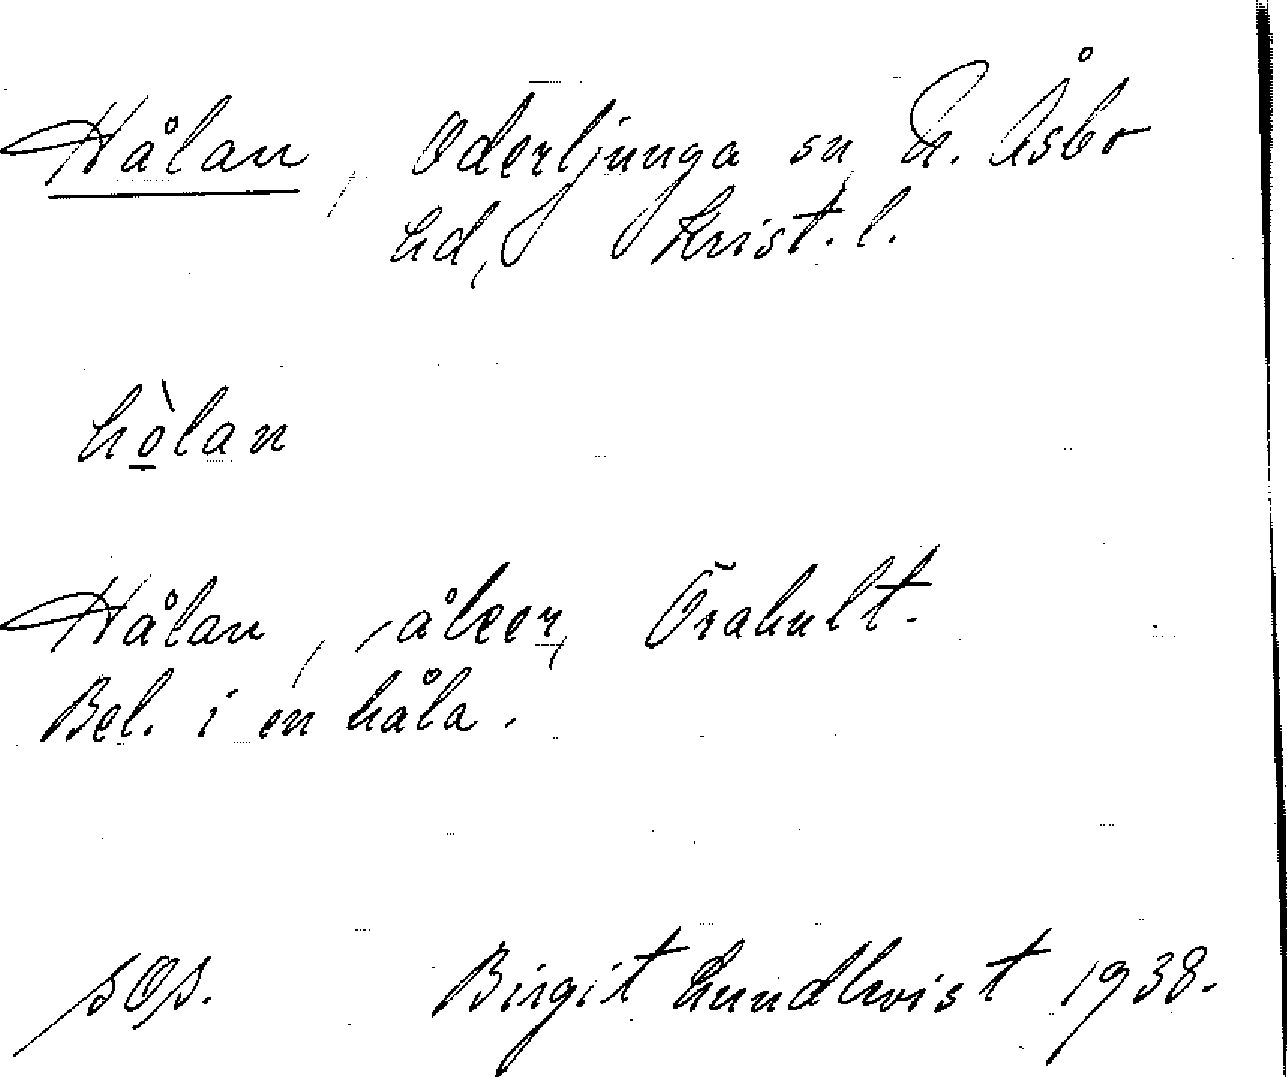 Hålan, Oderljunga sn, N. Åsbo
hd, Krist. l.
hò̲lan
Hålan, åker, Örahult.
Bel. i en håla.
Birgit Lundkvist 1938.